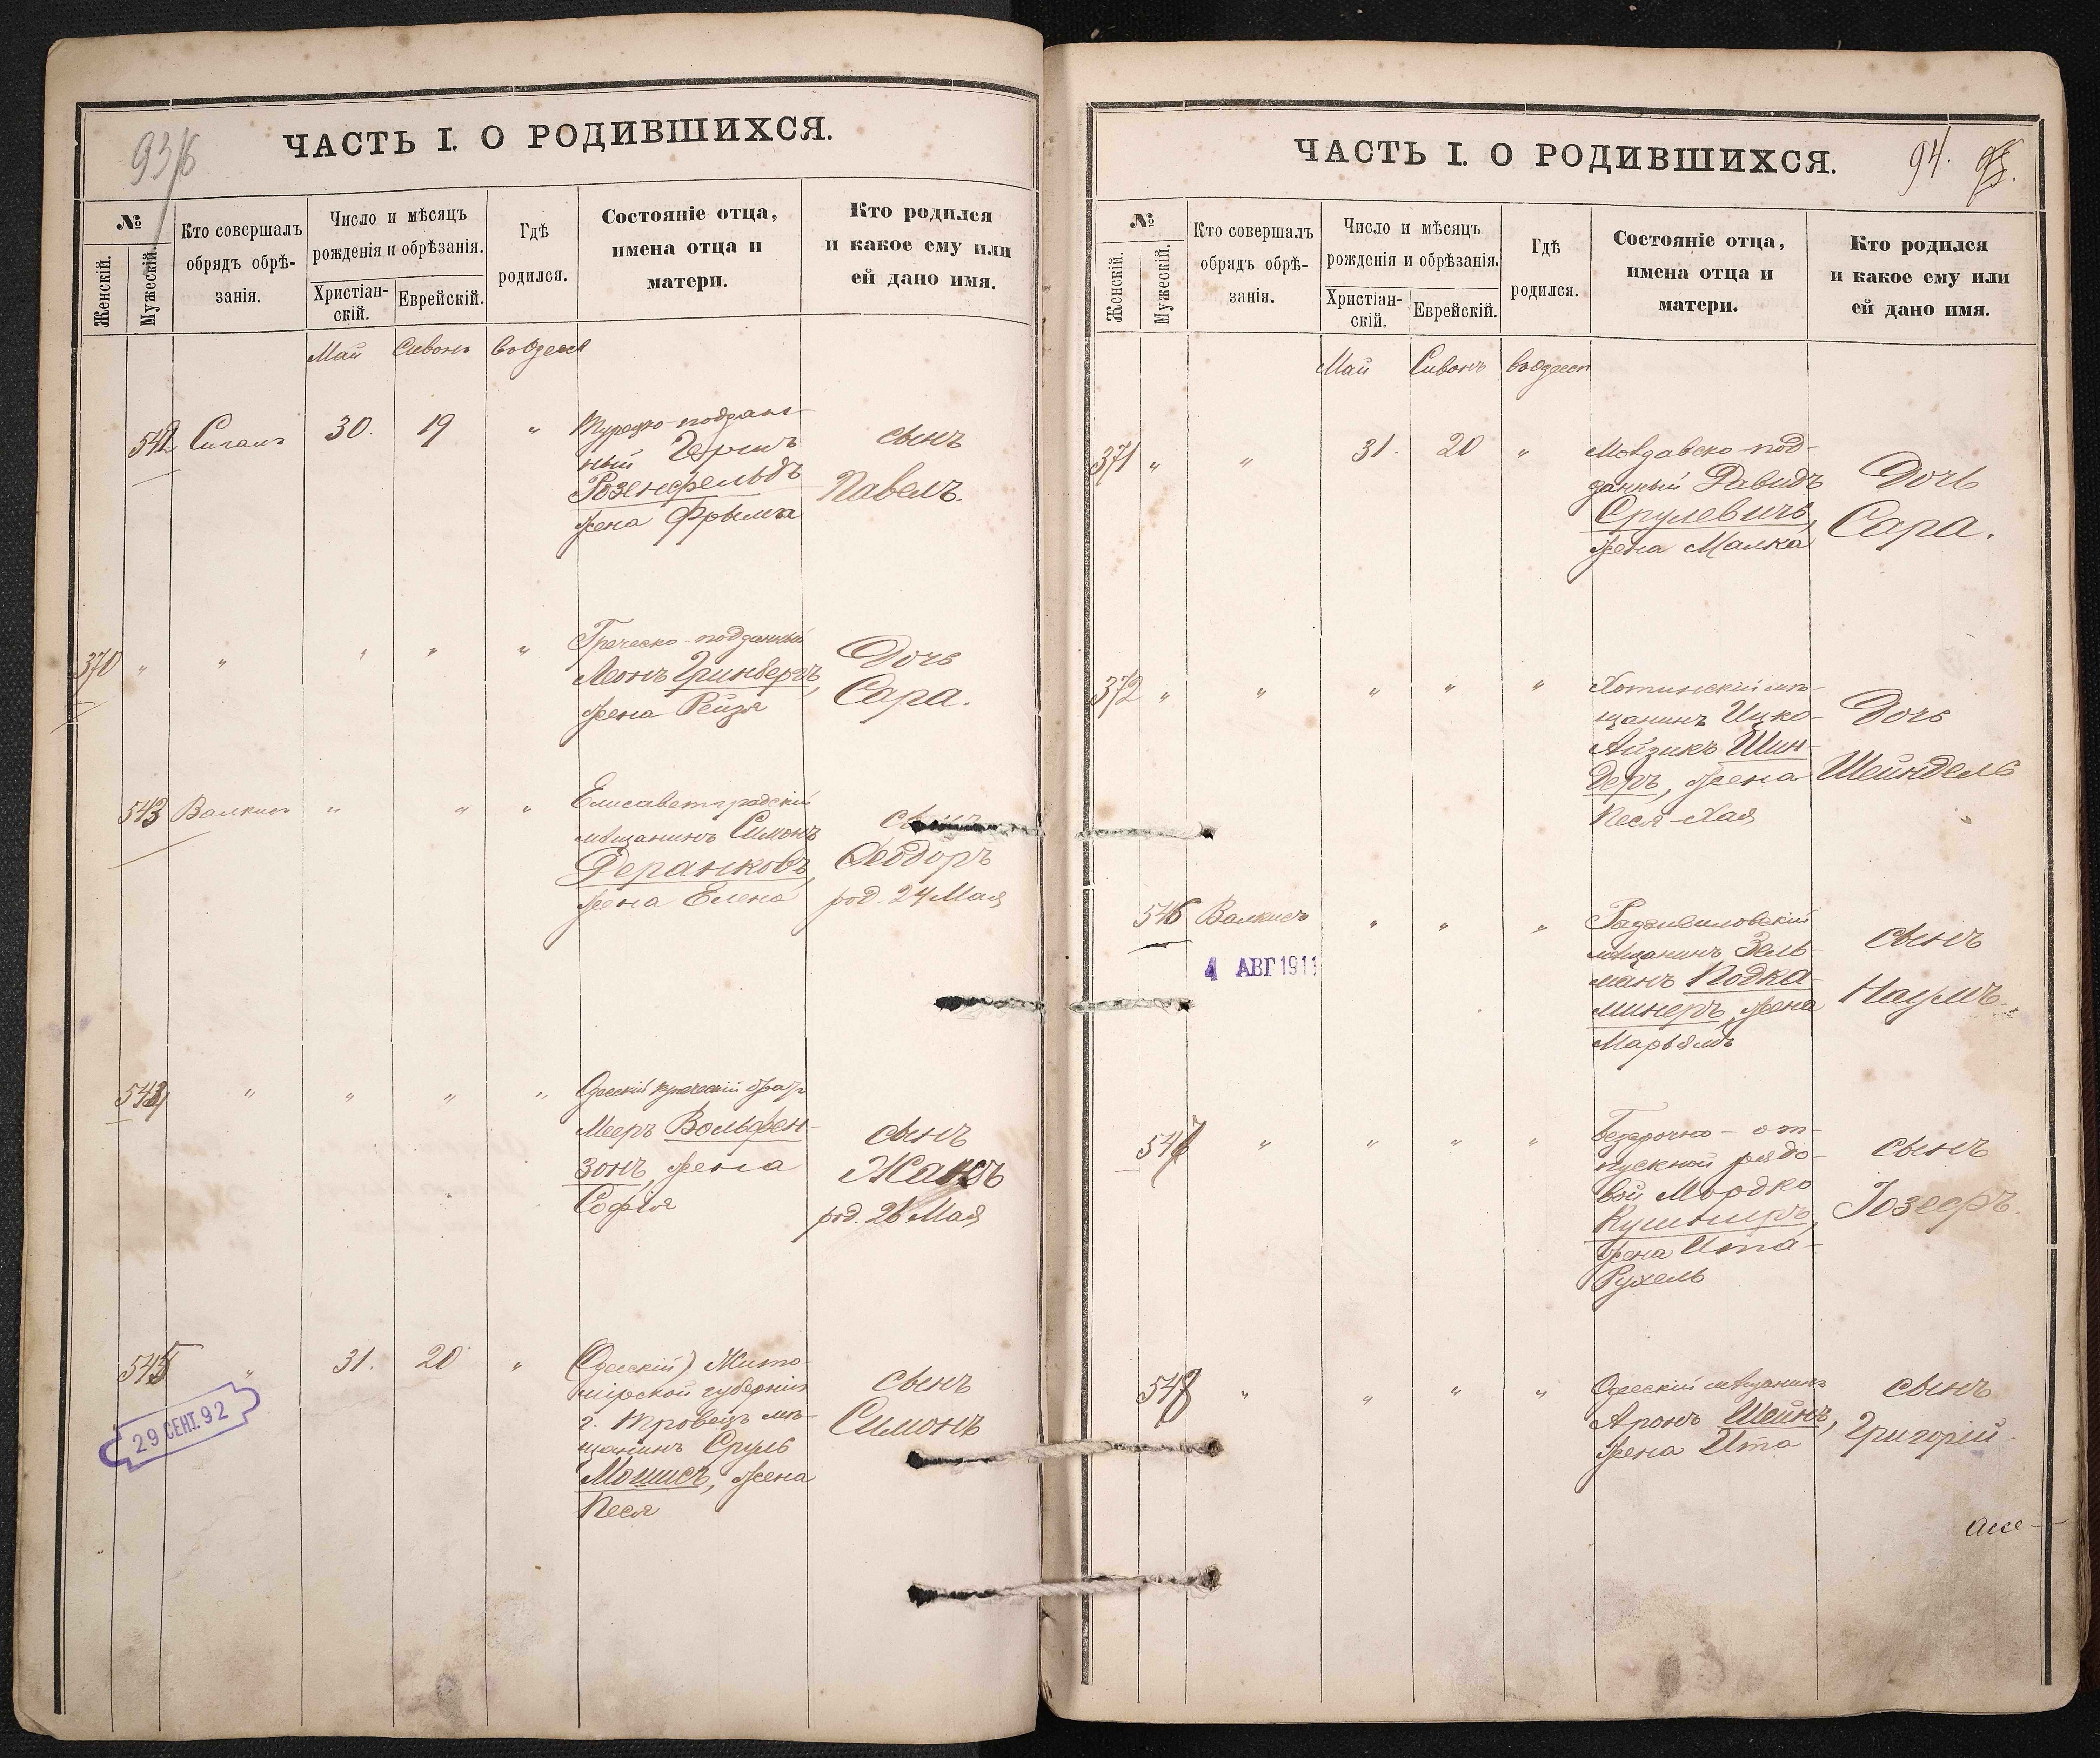 93/б
ЧАСТЬ I. О РОДИВШИХСЯ.
№
Женскій.
Мужескій.
Кто совершалъ
обрядъ обрѣ-
занія.
Число и мѣсяцъ
рожденія и обрѣзанія.
Христіан-
скій.
Еврейскій.
Гдѣ
родился.
Состояніе отца,
имена отца и
матери.
Кто родился
и какое ему или
ей дано имя.
Май Сивонъ
542 30. 19 "
ный Гершъ
Розенфельдъ
жена Фрыма
сынъ
Павелъ.
370 " " " " "
Греческо-подданный
Леонъ Гринбергъ,
жена Рейзя
Дочь
Сара.
543 Валкисъ " " "
Елисаветградскій
мѣщанинъ Симонъ
Деранковъ,
жена Елена
сынъ
Ѳеодоръ
род. 24 Мая
544 " " " "
Мееръ Вольфен-
зонъ, жена
Софія
сынъ
Жакъ
род. 26 Мая
545 " 31. 20 "
29 СЕНТ. 92
(Одесскій) Жито-
мірской губерніи
г. мѣ-
щанинъ Сруль
Мошисъ, жена
Песя
сынъ
Симонъ
94.
ЧАСТЬ I. О РОДИВШИХСЯ.
№
Женскій.
Мужескій.
Кто совершалъ
обрядъ обрѣ-
занія.
Число и мѣсяцъ
рожденія и обрѣзанія.
Христіан-
скій.
Еврейскій.
Гдѣ
родился.
Состояніе отца,
имена отца и
матери.
Кто родился
и какое ему или
ей дано имя.
Май Сивонъ
371 " " 31. 20 "
Молдавско-под-
данный Давидъ
Срулевичъ,
жена Малка
Дочь
Сара.
372 " " " " "
Хотинскій мѣ-
щанинъ Ицко-
Айзикъ Шин-
деръ, жена
Песя-Хая
Дочь
Шейндель
546 Валкисъ " " "
4 АВГ 1911
Радзивиловскій
мѣщанинъ Зель-
манъ Подка-
минеръ, жена
Марьямъ
сынъ
Наумъ.
547 " " " "
Безсрочно-от-
пускной рядо-
вой Мордко
Кушниръ,
жена Ита-
Рухель
сынъ
Іозефъ.
548 " " " "
Одесскій мѣщанинъ
Аронъ Шейнъ,
жена Ита
сынъ
Григорій.